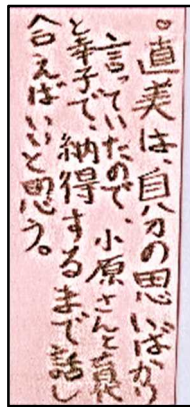 。直美は、自分の思いばかり
言っていたので、小原さんと真代
と幸子で、納得するまで話し
合えばいいと思う。